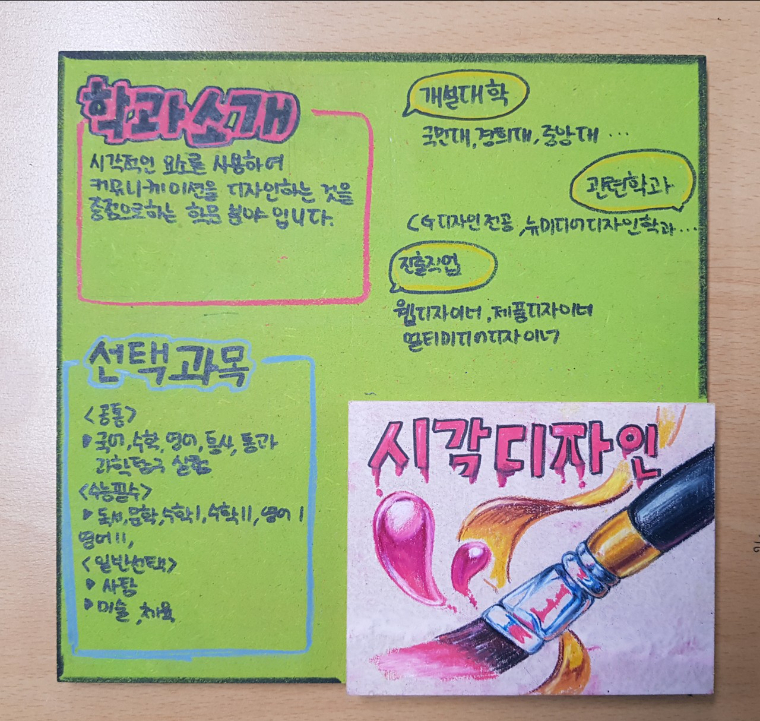 학과소개
시각적인 요소를 사용하여
커뮤니케이션을 디자인하는 것을
중점으로하는 학문 분야 입니다.
선택과목
<공통>
국어,수학,영어,통사,통과
과학탐구 실험
<수능필수>
독서,문학,수학I,수학II,영어 I
영어 II,
<일반선택>
사탐
미술,체육
개설대학
국민대,경희대,중앙대 ...
관련학과
CG디자인전공,뉴미디어디자인학과...
진출직업
웹디자이너,제품디자이너
멀티미디어디자이너
시각디자인